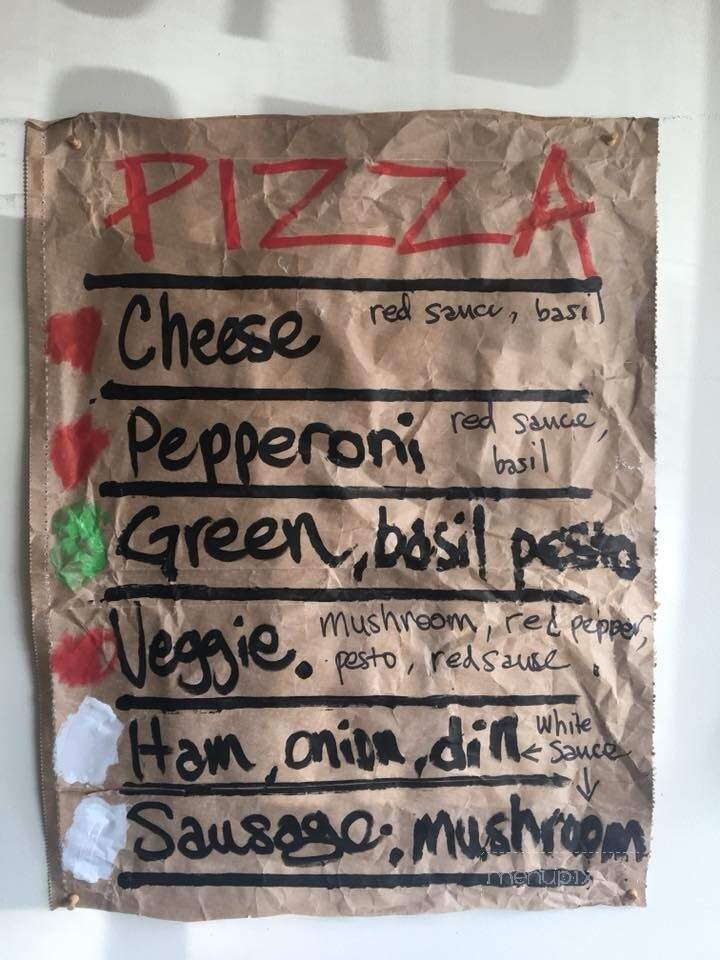 PIZZA
Cheese red sauce, basil
Pepperoni red sauce,
basil
Green, basil pesto
Veggie. mushroom, red pepper,
pesto, redsause
Ham, onion, dill ← White
Sauce
↓
Sausage, mushroom
menupix